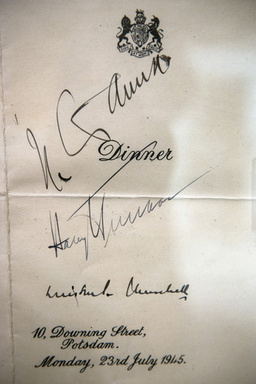 Dinner
Harry Truman
Winston S. Churchill
10, Downing Street,
Potsdam.
Monday, 23rd July 1945.